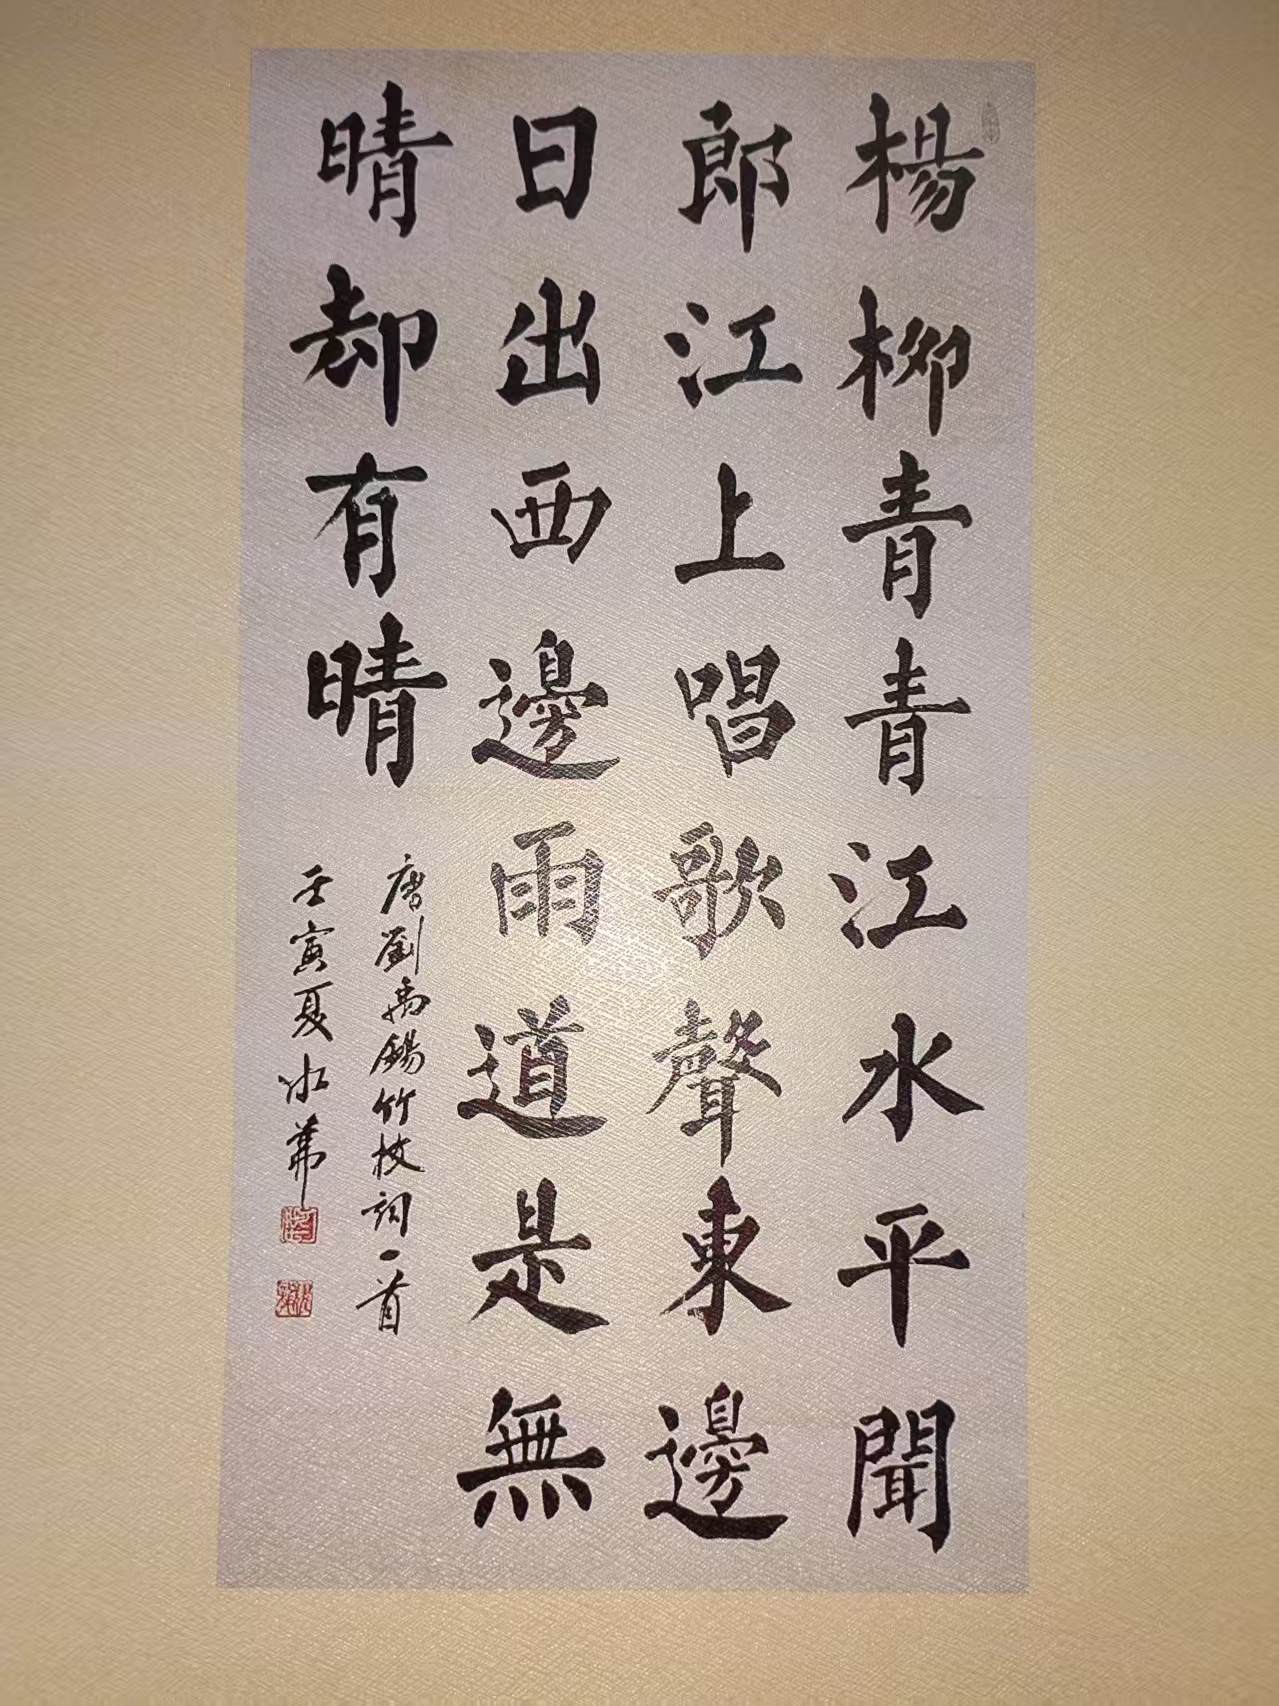 楊柳青青江水平聞
郎江上唱歌聲東邊
日出西邊雨道是無
晴却有晴
唐劉禹錫竹枝詞一首
壬寅夏冰華